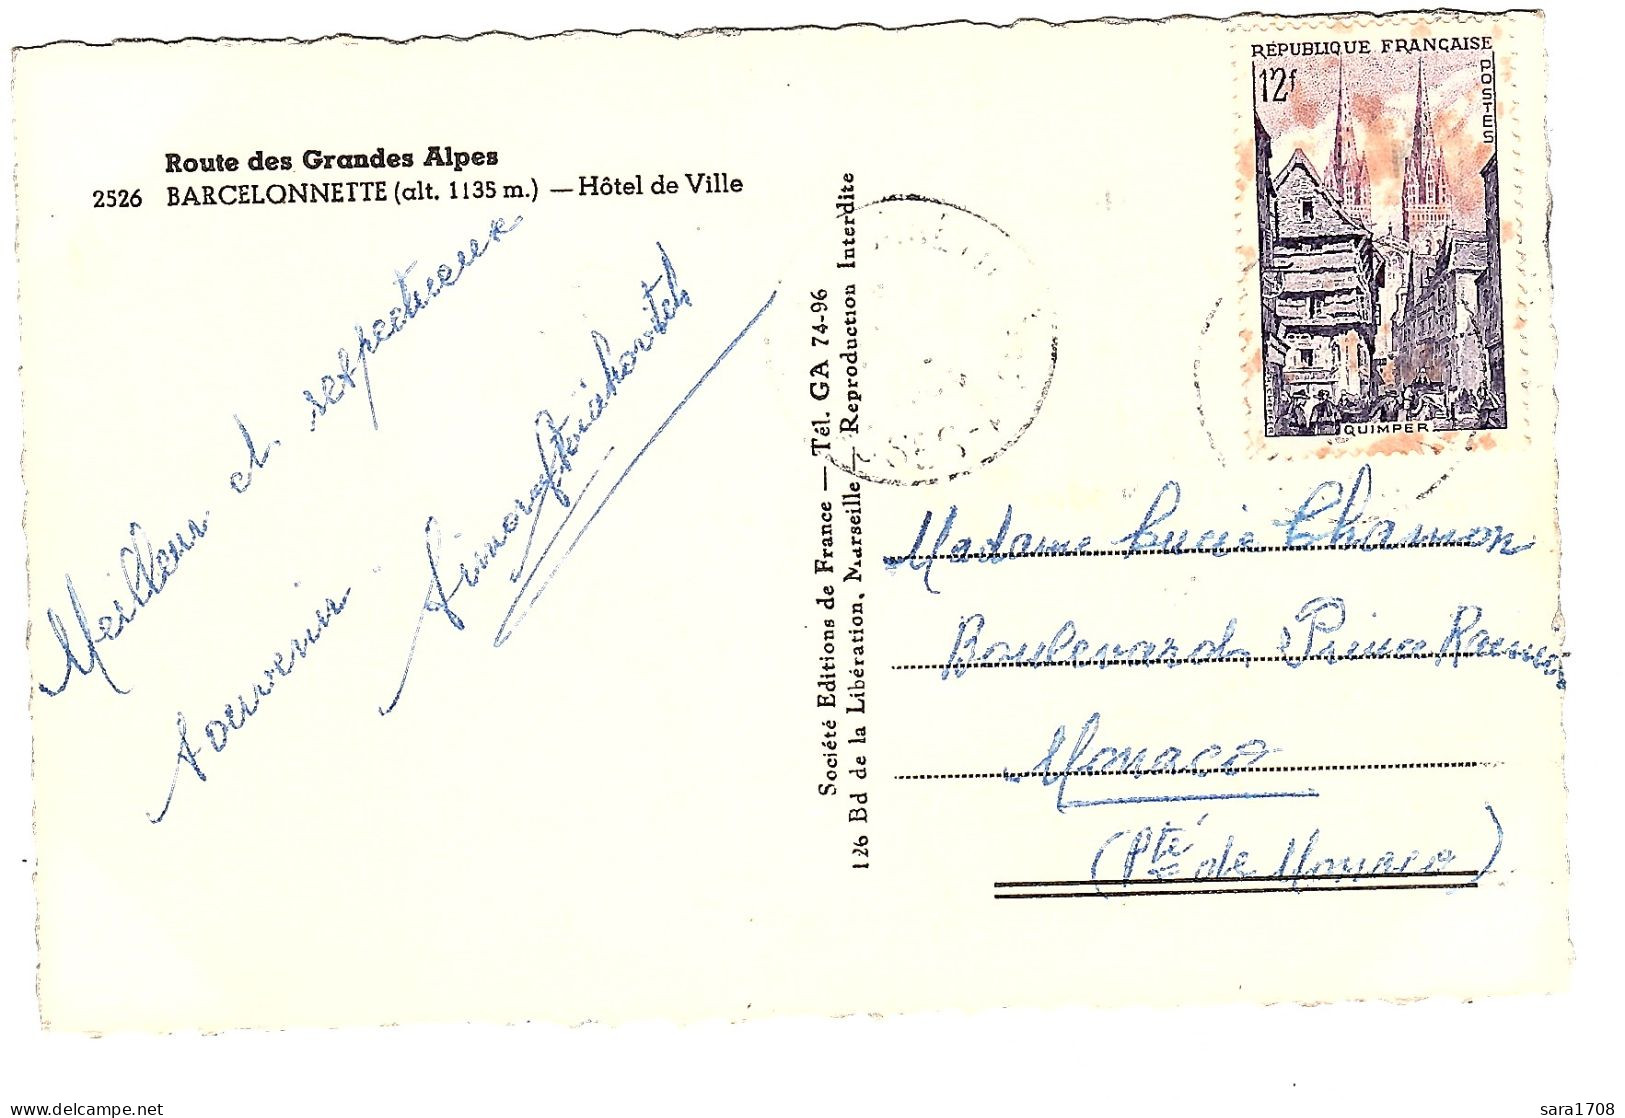 Route des Grandes Alpes
2526 BARCELONNETTE (alt. 1135 m.) — Hôtel de Ville
Meilleur et respectueux
souvenir
Société Editions de France — Tél. GA 74-96
126 Bd de la Libération, Marseille — Reproduction Interdite
RÉPUBLIQUE FRANÇAISE
12f
POSTES
QUIMPER
Madame Lucie Chamion
Boulevard Prince
Monaco
(Pté de Monaco)
sara1708